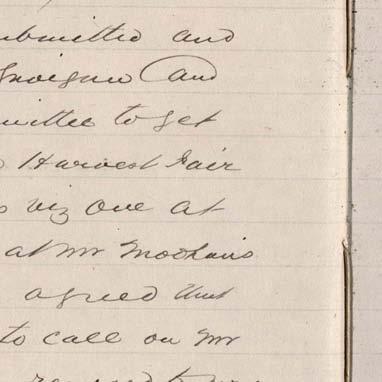 ubmitted and
and
mittee to get
Harvest Fair
viz one at
at Mr
agreed that
to call on Mr